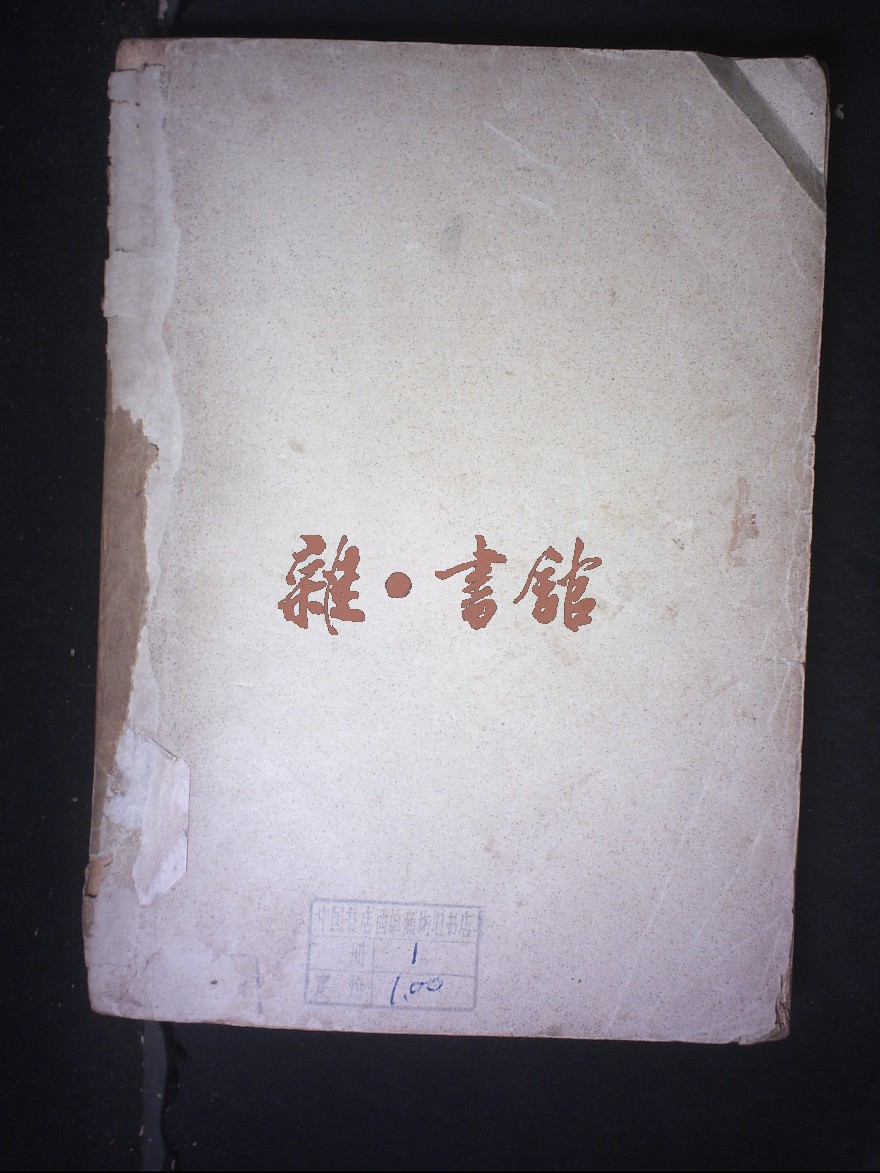 雜·書館
中国书店西单商场旧书店
册 1
定价 1.00